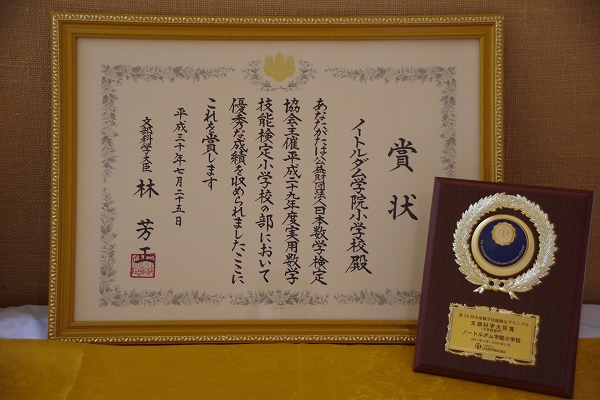 賞状
ノートルダム学院小学校殿
あなたがたは公益財団法人日本数学検定
協会主催平成二十九年度実用数学
技能検定小学校の部において
優秀な成績を収められましたここに
これを賞します
平成三十年七月二十五日
文部科学大臣 林 芳正
文部科学大臣賞
ノートルダム学院小学校